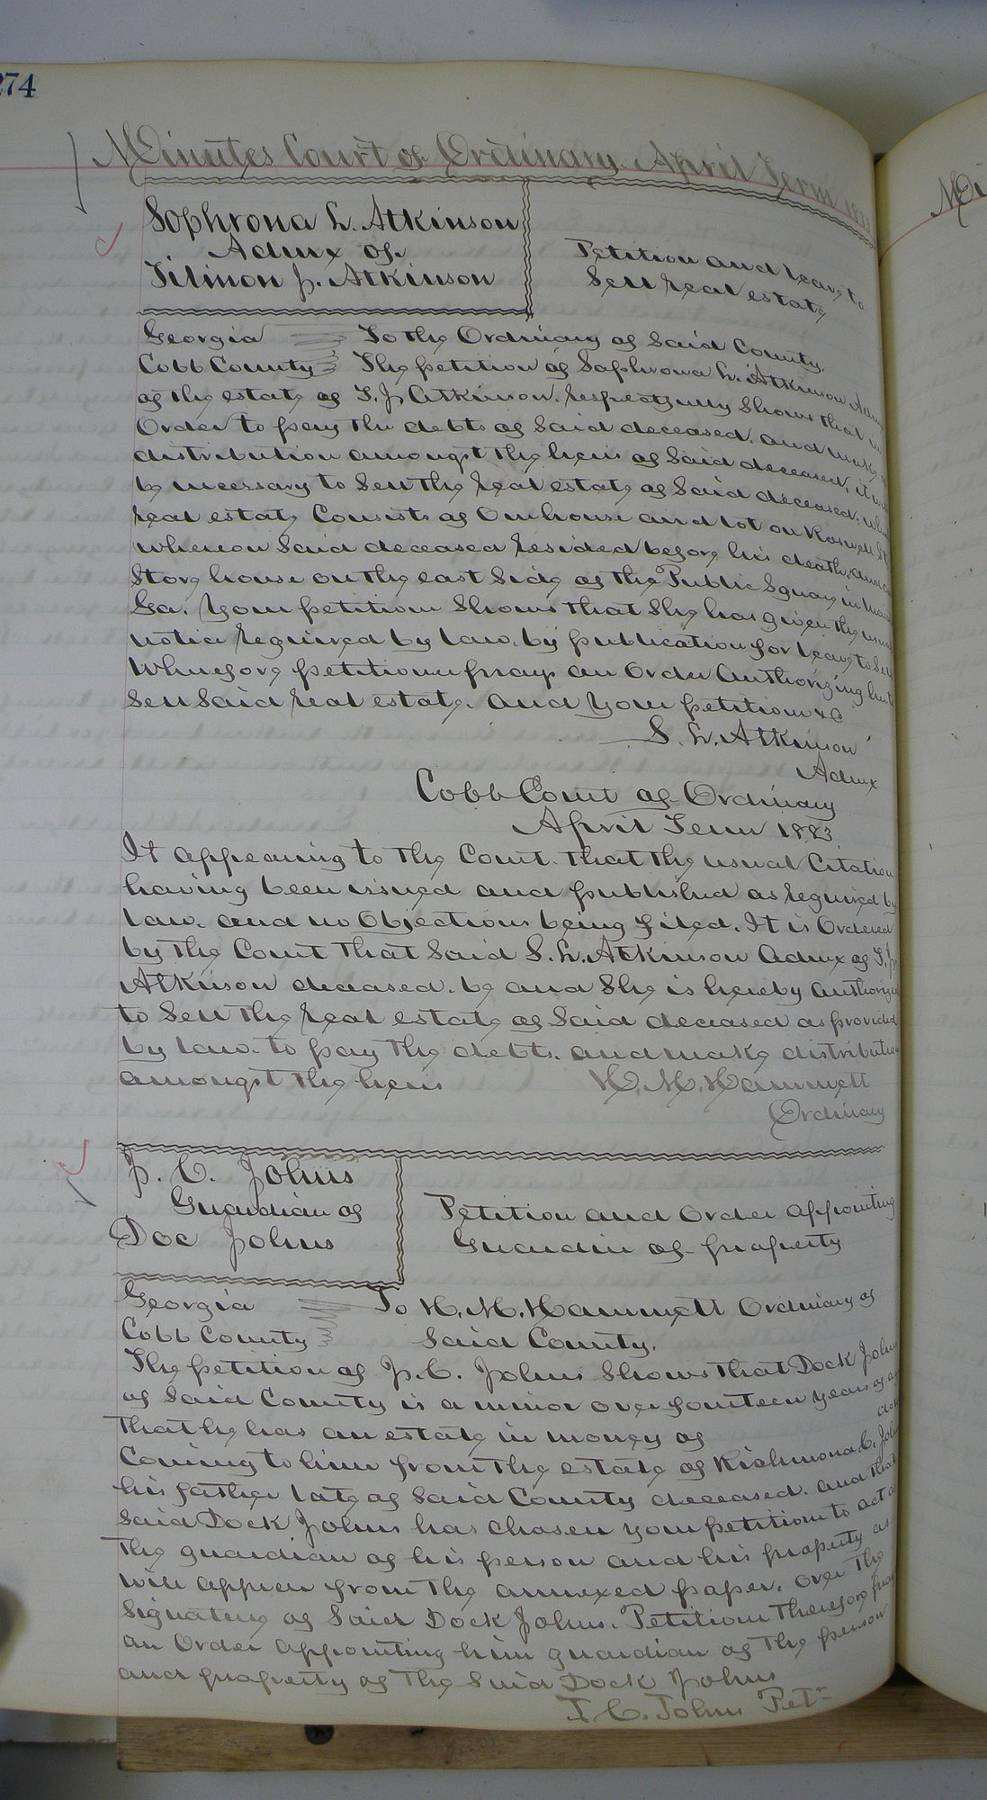 274
Minutes Court of Ordinary April Term
Sophrona L. Atkinson
Admx of
Tilmon J. Atkinson
Petition and leave to
Sell real estate
Georgia To the Ordinary of Said County.
Cobb County The petition of Sophrona L. Atkinson Admx
of the estate of T. J. Atkinson. respectfully Shows that in
Order to pay the debts of Said deceased. and make
distribution amongst the heirs of Said deceased, it
be necessary to Sell the real estate of Said deceased,
real estate Consists of One house and lot on Roswell St
whereon Said deceased resided before his death, and
Store house on the east Side of the Public Square in
Ga. Your petition Shows that She has given the usual
notice required by law, by publication for leave to Sell
Wherefore petitioner prays an Order Authorizing her to
Sell Said real estate. and Your petitioner &c
S. L. Atkinson
Admx
Cobb Court of Ordinary
April Term 1883
It appearing to the Court. that the usual Citation
having been issued and published as required by
law. and no Objections being filed. It is Ordered
by the Court that Said S. L. Atkinson Admx of T. J.
Atkinson deceased. be and She is hereby Authorized
to Sell the real estate of Said deceased as provided
by law. to pay the debts. and make distribution
amongst the heirs H. M. Hammett
Ordinary
J. C. Johns
Guardian of
Doc Johns
Petition and Order appointing
Guardin of property
Georgia To H. M. Hammett Ordinary of
Cobb County Said County.
The petition of J. C. Johns Shows that Dock Johns
of Said County is a minor over fourteen years of age
that he has an estate in money of
Coming to him from the estate of Richmond C. Johns
his father late of Said County deceased. and that
Said Dock Johns has chosen your petitioner to act as
the guardian of his person and his property as
will appear from the annexed paper. over the
Signature of Said Dock Johns. Petitioner Therefore prays
an Order appointing him guardian of the person
and property of the Said Dock Johns
J. C. Johns Petr